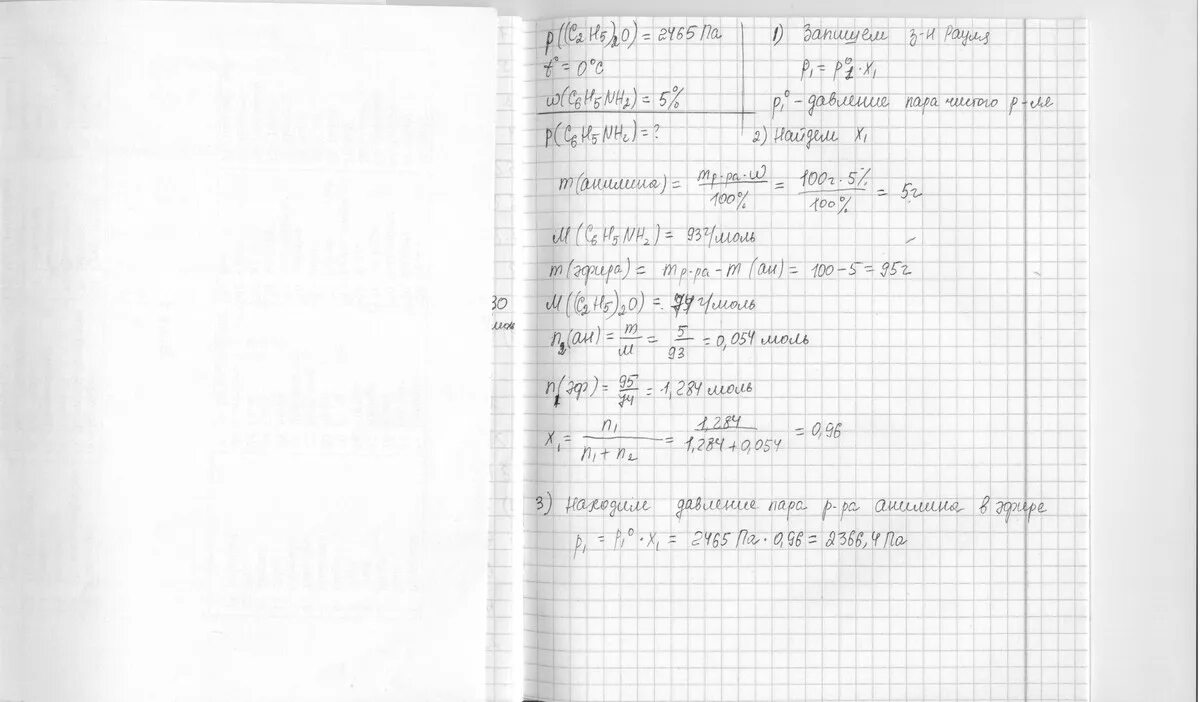 p((C2H5)2O) = 2465 Па
t° = 0°C
ω(C6H5NH2) = 5%
p(C6H5NH2) = ?
1) Запишем з-н Рауля
p₁ = p₁⁰ · x₁
p₁⁰ - давление пара чистого р-ля
2) Найдем x₁
m(анилина) = mр-ра·ω / 100% = 100г · 5% / 100% = 5г
M(C6H5NH2) = 93г/моль
m(эфира) = mр-ра - m(ан) = 100 - 5 = 95г
30
M((C2H5)2O) = 74г/моль
моль
n₂(ан) = m/M = 5/93 = 0,054 моль
n₁(эф) = 95/74 = 1,284 моль
x₁ = n₁ / n₁ + n₂ = 1,284 / 1,284 + 0,054 = 0,96
3) Находим давление пара р-ра анилина в эфире
p₁ = p₁⁰ · x₁ = 2465 Па · 0,96 = 2366,4 Па